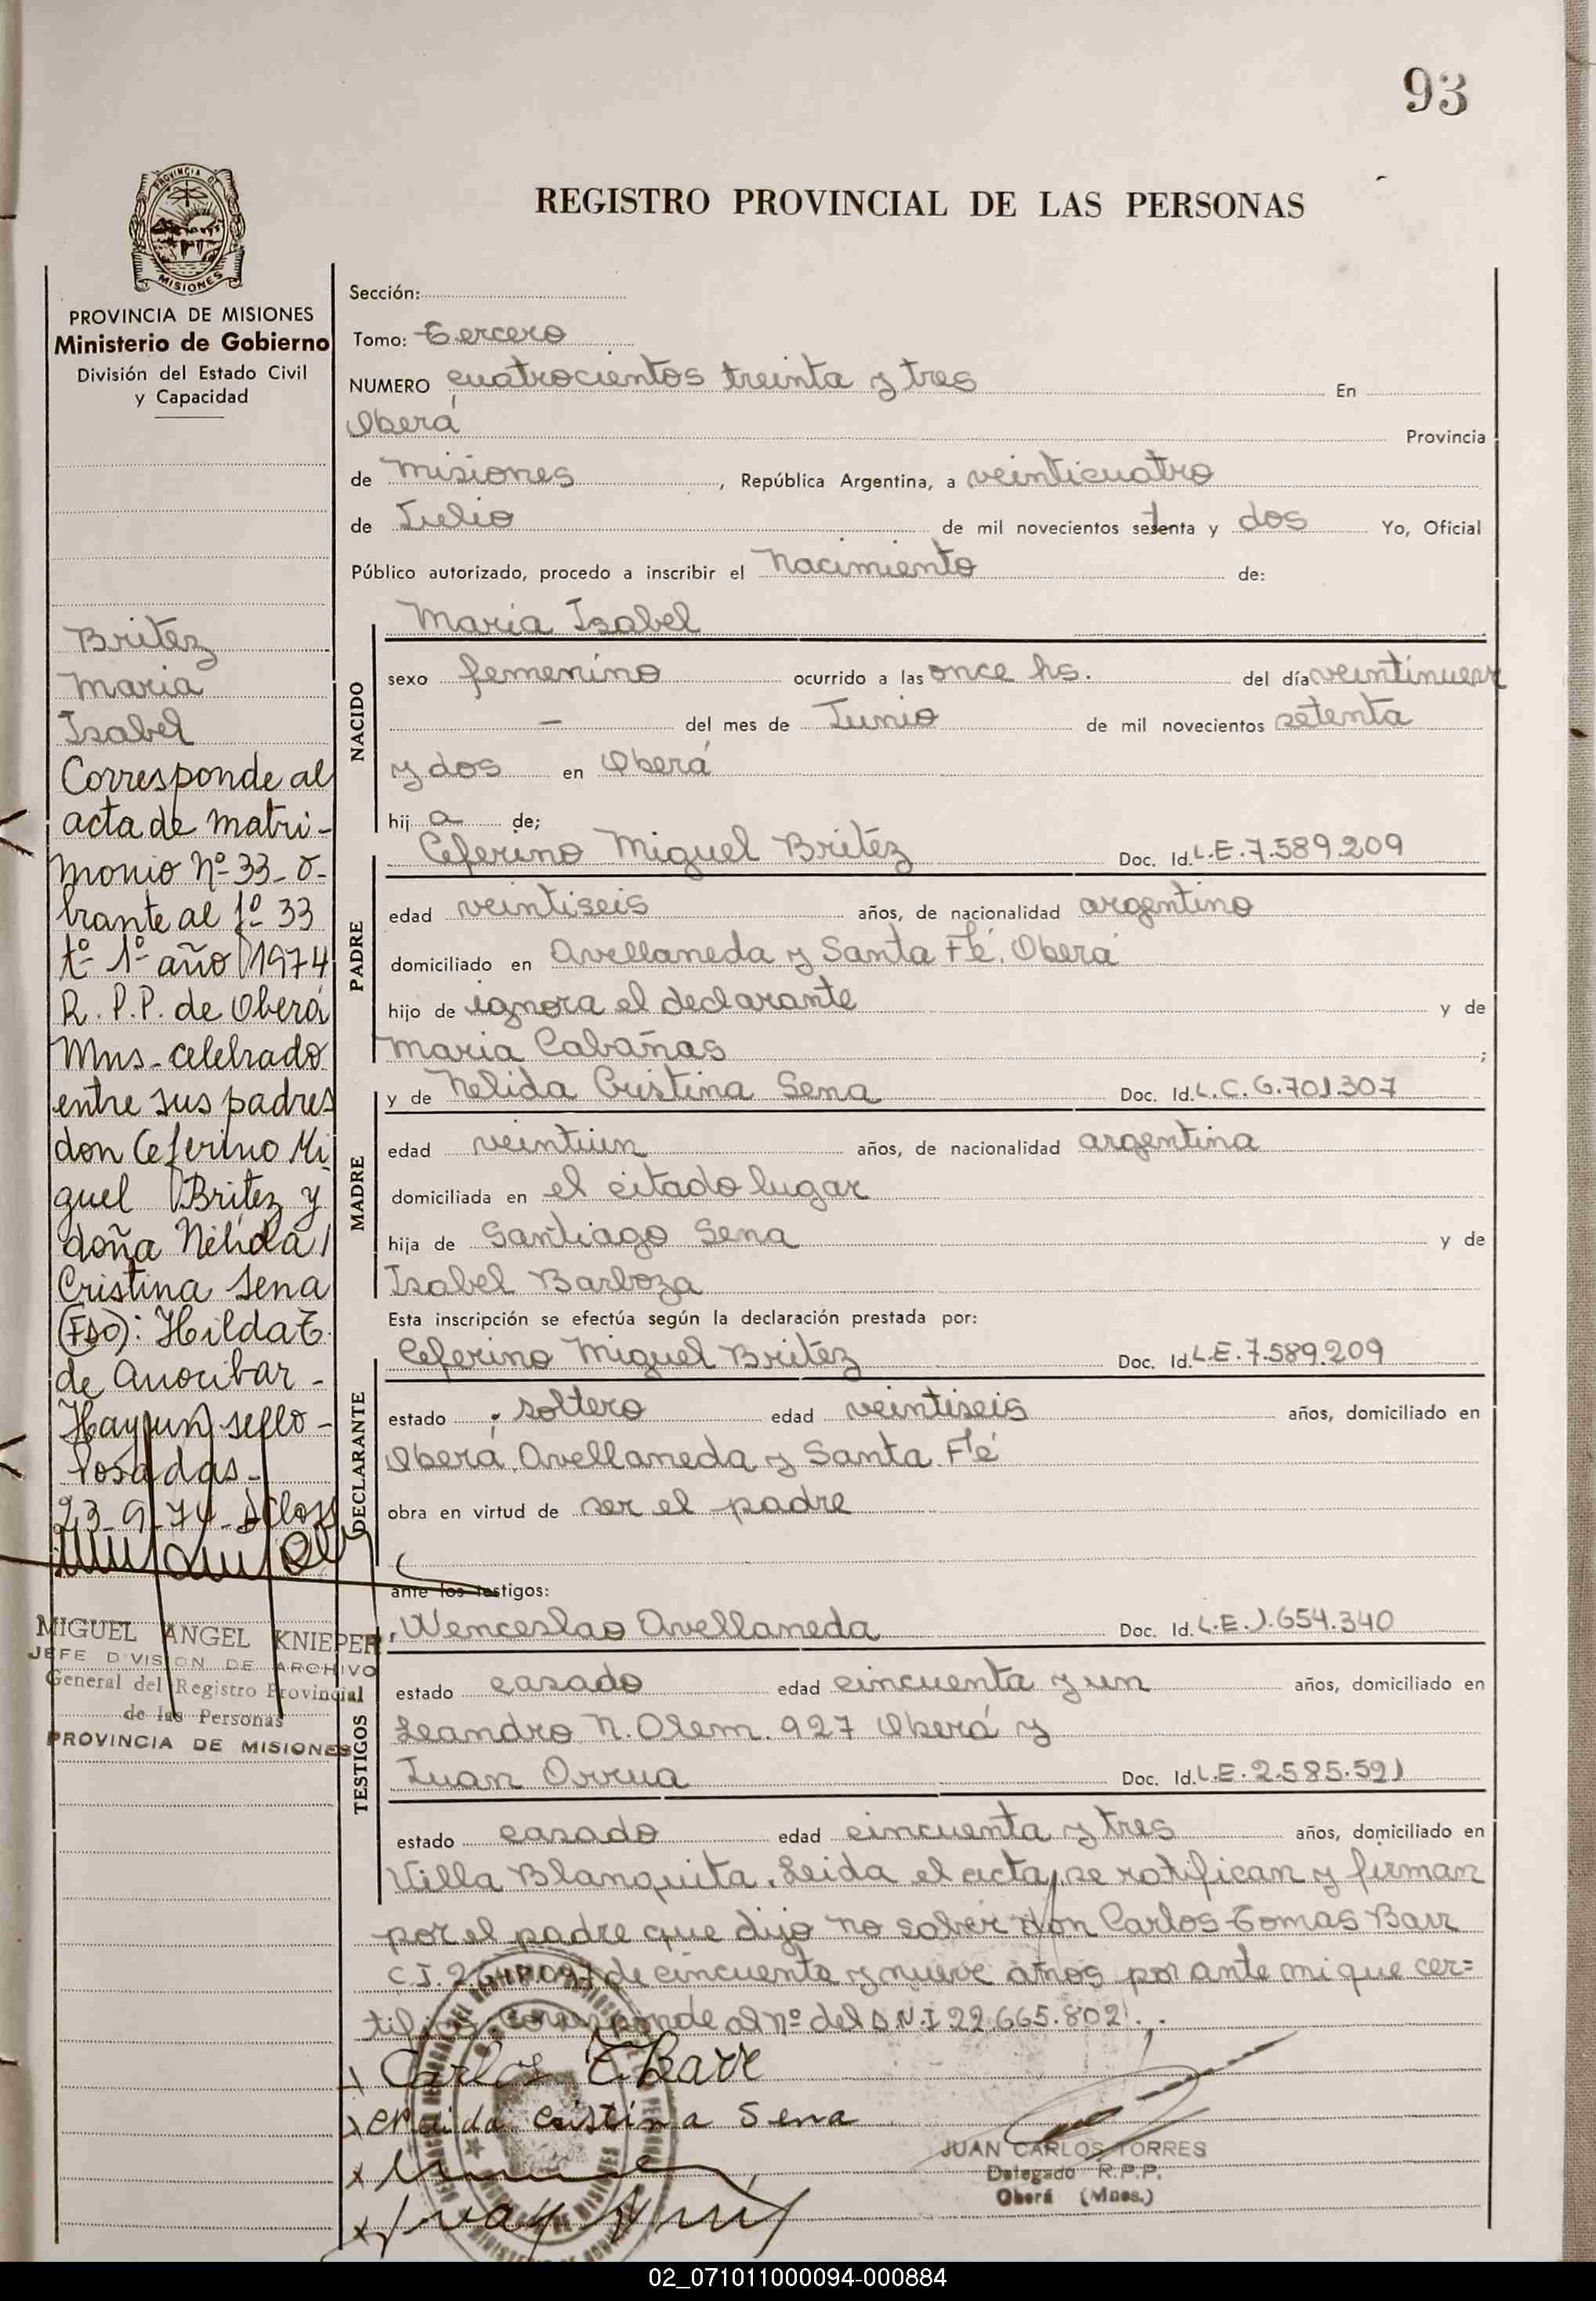 93
PROVINCIA DE
MISIONES
REGISTRO PROVINCIAL DE LAS PERSONAS
PROVINCIA DE MISIONES
Ministerio de Gobierno
División del Estado Civil
y Capacidad
Britez
Maria
Isabel
Corresponde al
acta de matri-
monio Nº 33 - o-
brante al fº 33
tº 1º año 1974
R. P. P. de Oberá
Mns - celebrado
entre sus padres
don Ceferino Mi
guel Britez y
doña Nélida
Cristina Sena
(Fdo): Hilda E.
de Anocibar -
Hay un sello -
Posadas -
23-9-74-
MIGUEL ANGEL KNIEPER
JEFE DIVISION DE ARCHIVO
General del Registro Provincial
de las Personas
PROVINCIA DE MISIONES
Sección:
Tomo: Tercero
NUMERO cuatrocientos treinta y tres En
Oberá Provincia
de Misiones, República Argentina, a veinticuatro
de Julio de mil novecientos setenta y dos Yo, Oficial
Público autorizado, procedo a inscribir el Nacimiento de:
María Isabel
NACIDO
sexo femenino ocurrido a las once hs. del día veintinueve
- del mes de Junio de mil novecientos setenta
y dos en Oberá
hij a de;
Ceferino Miguel Britéz Doc. Id. L.E. 7.589.209
PADRE
edad veintiseis años, de nacionalidad argentino
domiciliado en Avellaneda y Santa Fé. Oberá
hijo de ignora el declarante y de
Maria Cabañas;
y de Nelida Cristina Sena Doc. Id. L.C. 6.701.307
MADRE
edad veintiún años, de nacionalidad argentina
domiciliada en el citado lugar
hija de Santiago Sena y de
Isabel Barboza
Esta inscripción se efectúa según la declaración prestada por:
Ceferino Miguel Britez Doc. Id. L.E. 7.589.209
DECLARANTE
estado soltero edad veintiseis años, domiciliado en
Oberá, Avellaneda y Santa Fé
obra en virtud de ser el padre
ante los testigos:
Wenceslao Avellaneda Doc. Id. L.E. 1.654.340
TESTIGOS
estado casado edad cincuenta y un años, domiciliado en
Leandro N. Olem. 927 Oberá y
Juan Orrua Doc. Id. L.E. 2.585.591
estado casado edad cincuenta y tres años, domiciliado en
Villa Blanquita. Leida el acta, se ratifican y firman
por el padre que dijo no saber don Carlos Tomas Barr
C.I. de cincuenta y nueve años por ante mi que cer=
tifico. corresponde al nº del D.N.I 22.665.802.
Carlos T Barr
cristina Sena
JUAN CARLOS TORRES
Delegado R.P.P.
Oberá (Mnes.)
02_071011000094-000884